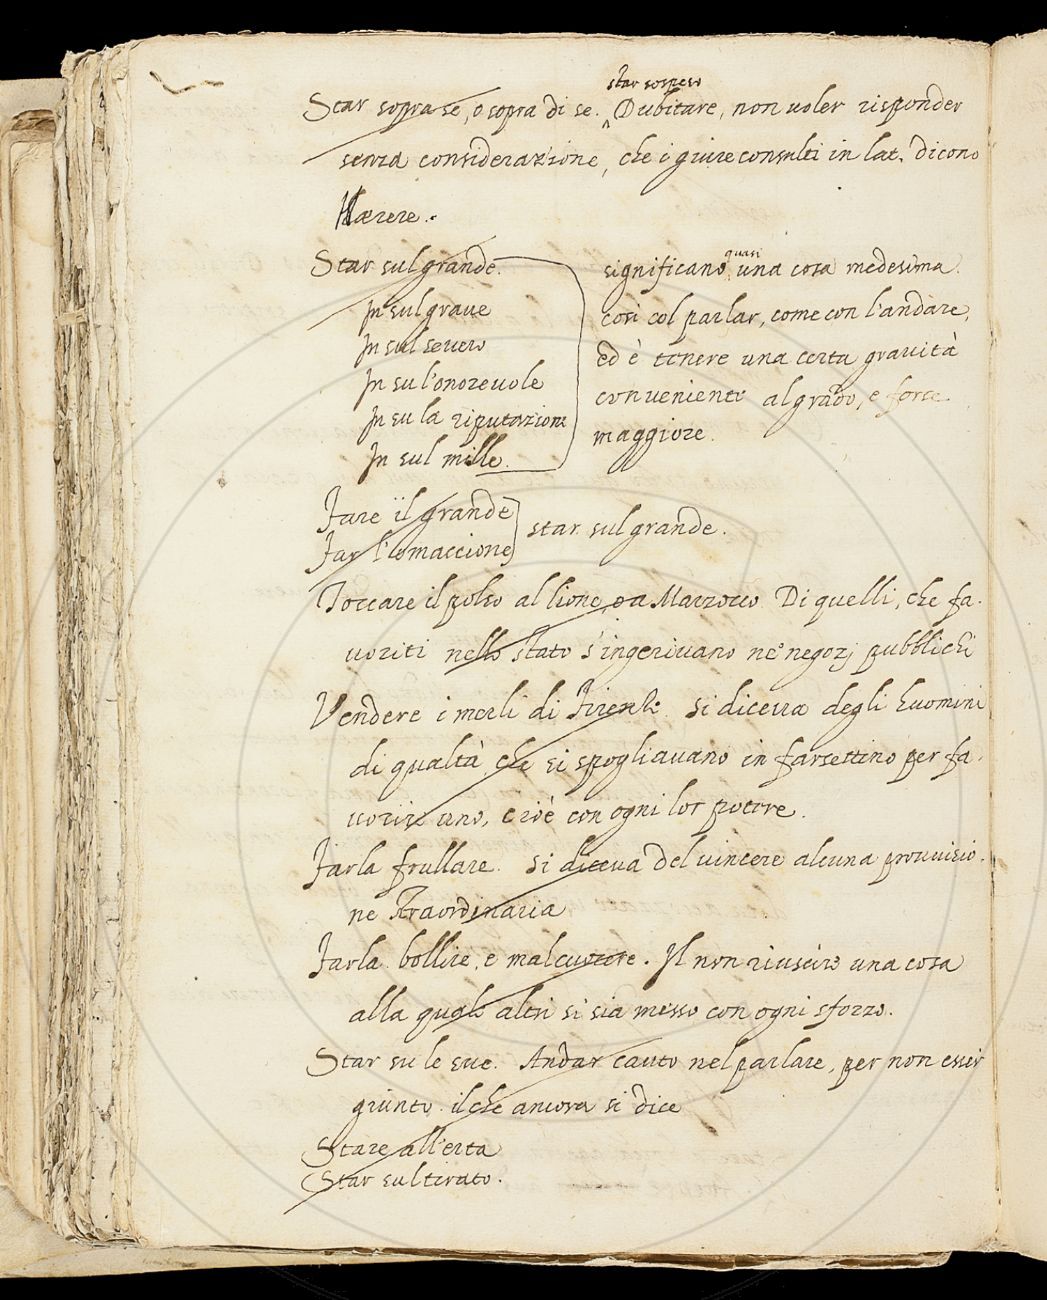 star sospeso
Star sopra se, o sopra di se. Dubitare, non uoler risponder
senza considerazione, che i giureconsulti in lat. dicono
Hærere.
Star sul grande.
In sul graue
In sul seuero
In su l'onoreuole
In su la riputazione
In sul mille.
quasi
significano una cosa medesima.
cosi col parlar, come con l'andare,
ed è tenere una certa grauità
conueniente al grado, e forse
maggiore.
Fare il grande
Far l'omaccione
star sul grande.
Toccare il polso al lione, o a Marzocco Di quelli, che fa-
uoriti nello stato s'ingeriuano ne' negozj pubblichi
Vendere i merli di Firenze. si diceua degli huomini
di qualtà che si spogliauano in farsettino per fa-
uorire uno, cioè con ogni lor potere.
Farla frullare. Si diceua del uincere alcuna prouuisio-
ne straordinaria
Farla bollire, e mal cuocere. Il non riuscire una cosa
alla quale altri si sia messo con ogni sforzo.
Star su le sue. Andar cauto nel parlare, per non esser
giunto. il che ancora si dice
Stare all'erta
Star sul tirato.